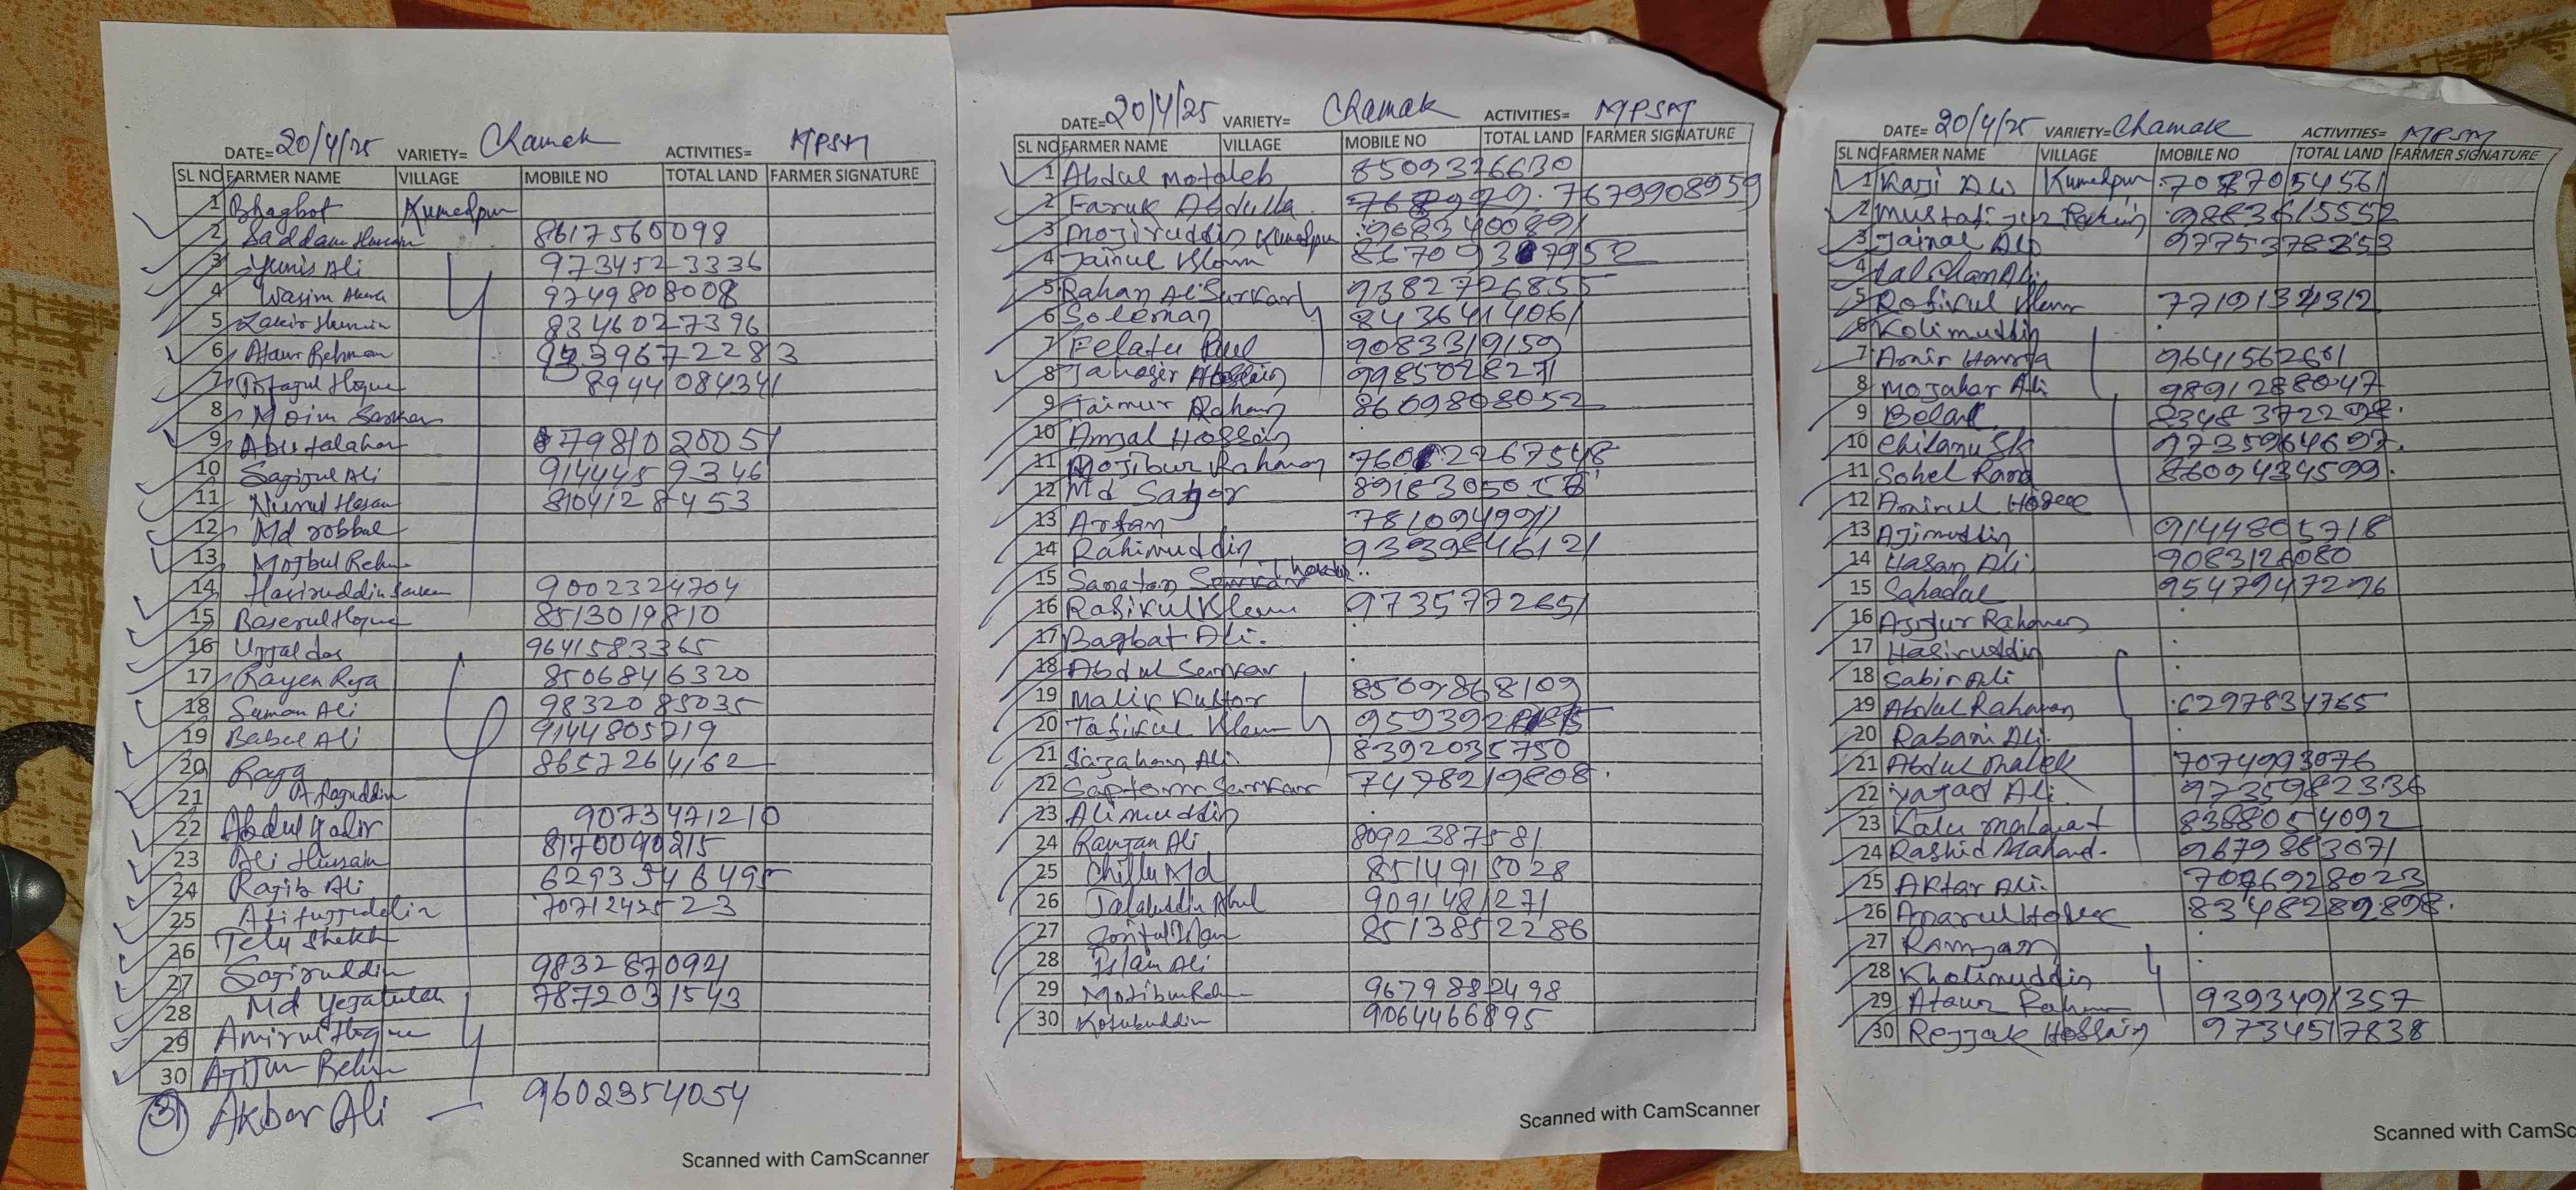 DATE= 20/4/25 VARIETY= Chamak ACTIVITIES= MPSM
SL NO FARMER NAME VILLAGE MOBILE NO TOTAL LAND FARMER SIGNATURE
1 Bhagbot Kumedpur
2 Saddam Husain 8617560098
3 Yunis Ali 9734523336
4 Wasim Akra 9749808008
5 Zakir Husain 8346027396
6 Ataur Rehman
7 Tofajul Hoque 8944084341
8 Moim Sarkar
9 Abu talahar 7981020051
10 Sajijul Ali 9144459346
11 Nurul Hasan 8104128453
12 Md robbul
13 Mojbul Rehn
14 Hasiruddin Sarkar 9002324704
15 Baserul Hoque 8513019810
16 Ujjal das 9641583365
17 Rayen Reja 8506846320
18 Suman Ali 9832085035
19 Babul Ali 9144805719
20 Raja 8657264162
21 Afajuddin
22 Abdul Kadir 9073471210
23 Ali Hussain 8170090215
24 Rajib Ali 6293546495
25 Afifujjuddin 7071242523
26 Telu Shekh
27 Sajiruddin 9832870921
28 Md Yejatullah 7872031543
29 Amirul Hoque
30 Ajijur Rehn
31 Akbar Ali — 9602354054
Scanned with CamScanner
DATE= 20/4/25 VARIETY= Chamak ACTIVITIES= MPSM
SL NO FARMER NAME VILLAGE MOBILE NO TOTAL LAND FARMER SIGNATURE
1 Abdul Motaleb 8509326630
2 Faruk Abdulla 7679908959
3 Mojiruddin Kumedpur 9683400891
4 Jainul Islam
5 Rahan Ali Sarkar 9382726855
6 Soleman 8436414061
7 Felatu Paul 9083319159
8 Jahagir Hossain 9985028271
9 Taimur Rahan 8609808052
10 Amjal Hossain
11 Mojibur Rahman
12 Md Sagor
13 Arfan 7810949911
14 Rahimuddin
15 Sanatan Sarkar
16 Rafikul Islam 9735772651
17 Bagbat Ali.
18 Abdul Sarkar
19 Malik Kustor 8509868109
20 Tafikul Islam
21 Sajahan Ali 8392035750
22 Saptam Sarkar 7478219808
23 Alimuddin
24 Ramjan Ali 8092387581
25 Chillu Md 8514915028
26 Jalaluddin Abul 9091481271
27 8513852286
28 Islam Ali
29 Motibur Rehn 9679882498
30 Kotubuddin 9064466895
Scanned with CamScanner
DATE= 20/4/25 VARIETY= Chamak ACTIVITIES= MPSM
SL NO FARMER NAME VILLAGE MOBILE NO TOTAL LAND FARMER SIGNATURE
1 Kaji Ali Kumedpur
2 Mustafijur Rahim 9883615552
3 Jainal Ali 9775378253
4 Lal Chan Ali
5 Rofikul Islam 7719134312
6 Kolimuddin
7 Amir Hamja 9641562661
8 Mojahar Ali 9891288047
9 Belal 8348372298
10 Chilanu Sk 9735964697
11 Sohel Rana 8609434599
12 Amirul Hoque
13 Ajimuddin 9144805718
14 Hasan Ali 9083126080
15 Sahadal 9547947296
16 Ajijur Rahman
17 Hasiruddin
18 Sabir Ali
19 Abdul Rahman 6297834765
20 Rabani Ali
21 Abdul Malek 7074993076
22 Yajad Ali 9735982336
23 Kalu Mahamat 8388054092
24 Rashid Mahamd. 9679863071
25 Aktar Ali. 7076928023
26 Anarul Hoque 8348289898
27 Ramjan
28 Kholimuddin
29 Ataur Rahman 9393491357
30 Rejjak Hossain 9734517838
Scanned with CamSc